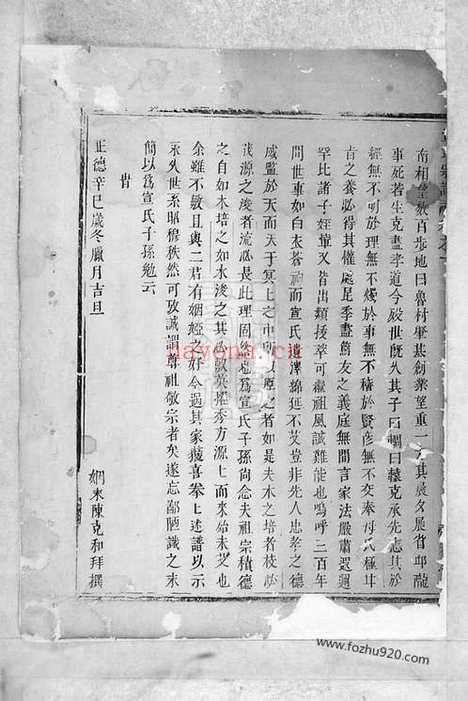 南相 數百步地曰魯村肇基創業望重一 其晨夕展省邱隴
事死若生克盡孝道今歿世既久其子曰 曰轅克承先志其於
經無不明於理無不燭於事無不積於賢彥無不交奉母氏極甘
旨之養必得其懽處昆季盡篤友之義庭無間言家法嚴肅遐邇
罕比諸子姪輩又皆出類援萃可繼祖風誠難能也嗚呼二百年
間世事如白衣蒼 而宣氏 澤綿延不艾豈非先人忠孝之德
感監於天而天于冥上之中所以 之者如是夫木之培者枝必
茂源之浚者流必長此理固然也為宣氏子孫尚念夫祖宗積德
之自如木培之如水浚之其 敬英擢秀方源上而來始未艾也
余雖不敏且與二君有姻婭之好今過其家 喜拳上述譜以示
永久世系昭穆秩然可攷誠謂尊祖敬宗者矣遂忘鄙陋識之末
簡以為宣氏子孫勉云
旹
正德辛巳歲冬臘月吉旦
姻末陳克和拜撰
nayona.cn
www.fozhu920.com